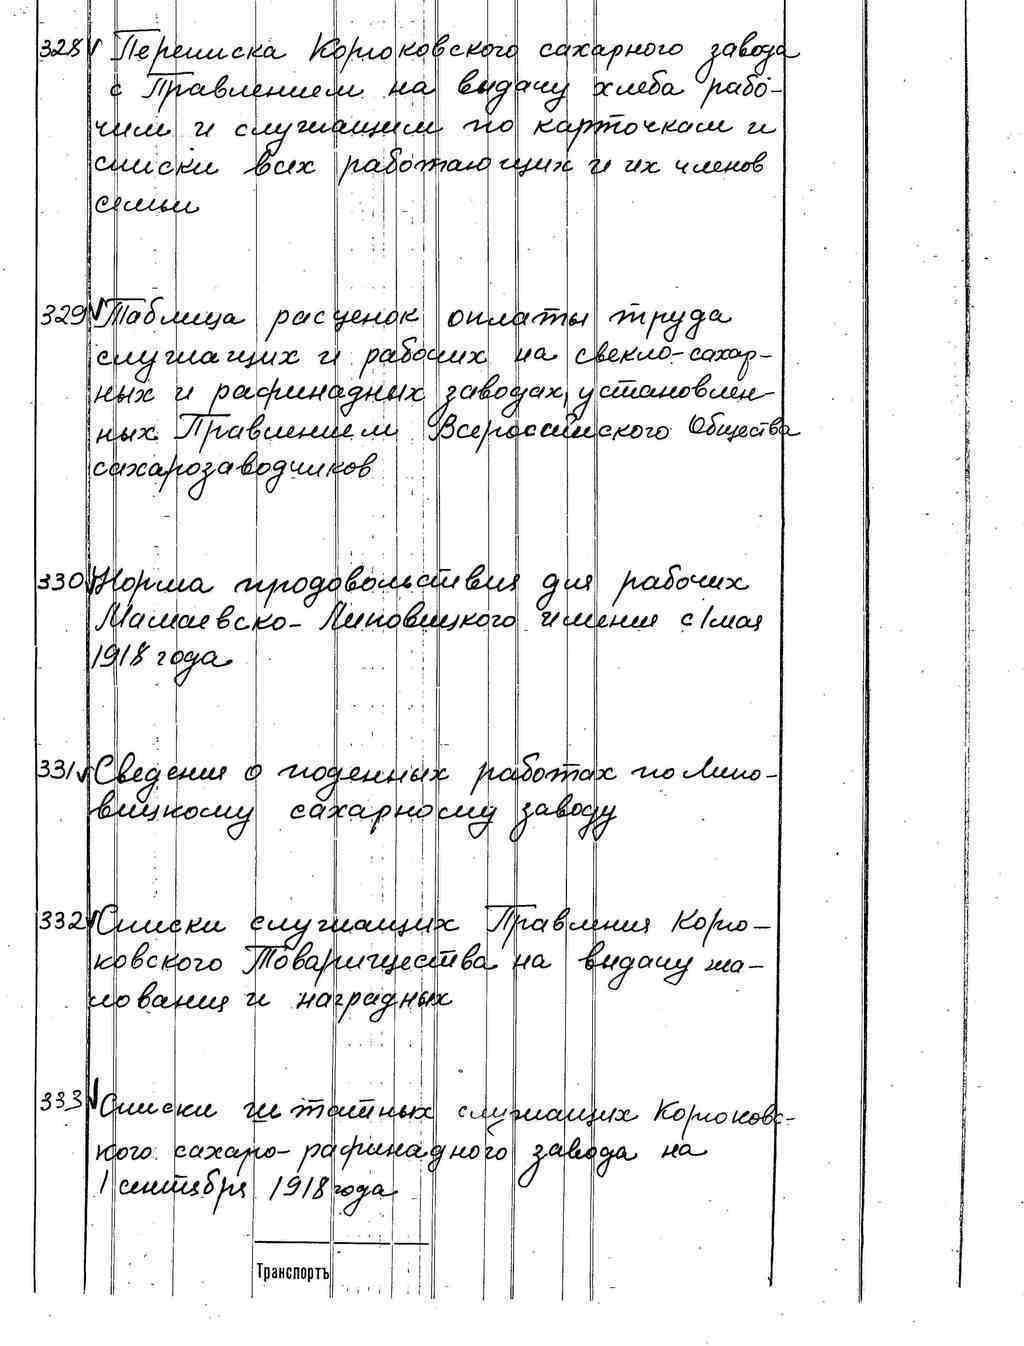 328 Переписка Корюковского сахарного завода
с Правлением на выдачу хлеба рабо-
чим и служащим по карточкам и
списки всех работающих и их членов
семьи
329 Таблица расценок оплаты труда
служащих и рабочих на свекло-сахар-
ных и рафинадных заводах, установлен-
ных Правлением Всероссийского Общества
сахарозаводчиков
330 Норма продовольствия для рабочих
Мамаевско-Линовицкого имения с 1 мая
1918 года
331 Сведения о поденных работах по Лино-
вицкому сахарному заводу
332 Списки служащих Правления Корю-
ковского Товарищества на выдачу жа-
лования и наградных
333 Списки штатных служащих Корюковс-
кого сахаро-рафинадного завода на
1 сентября 1918 года
Транспортъ